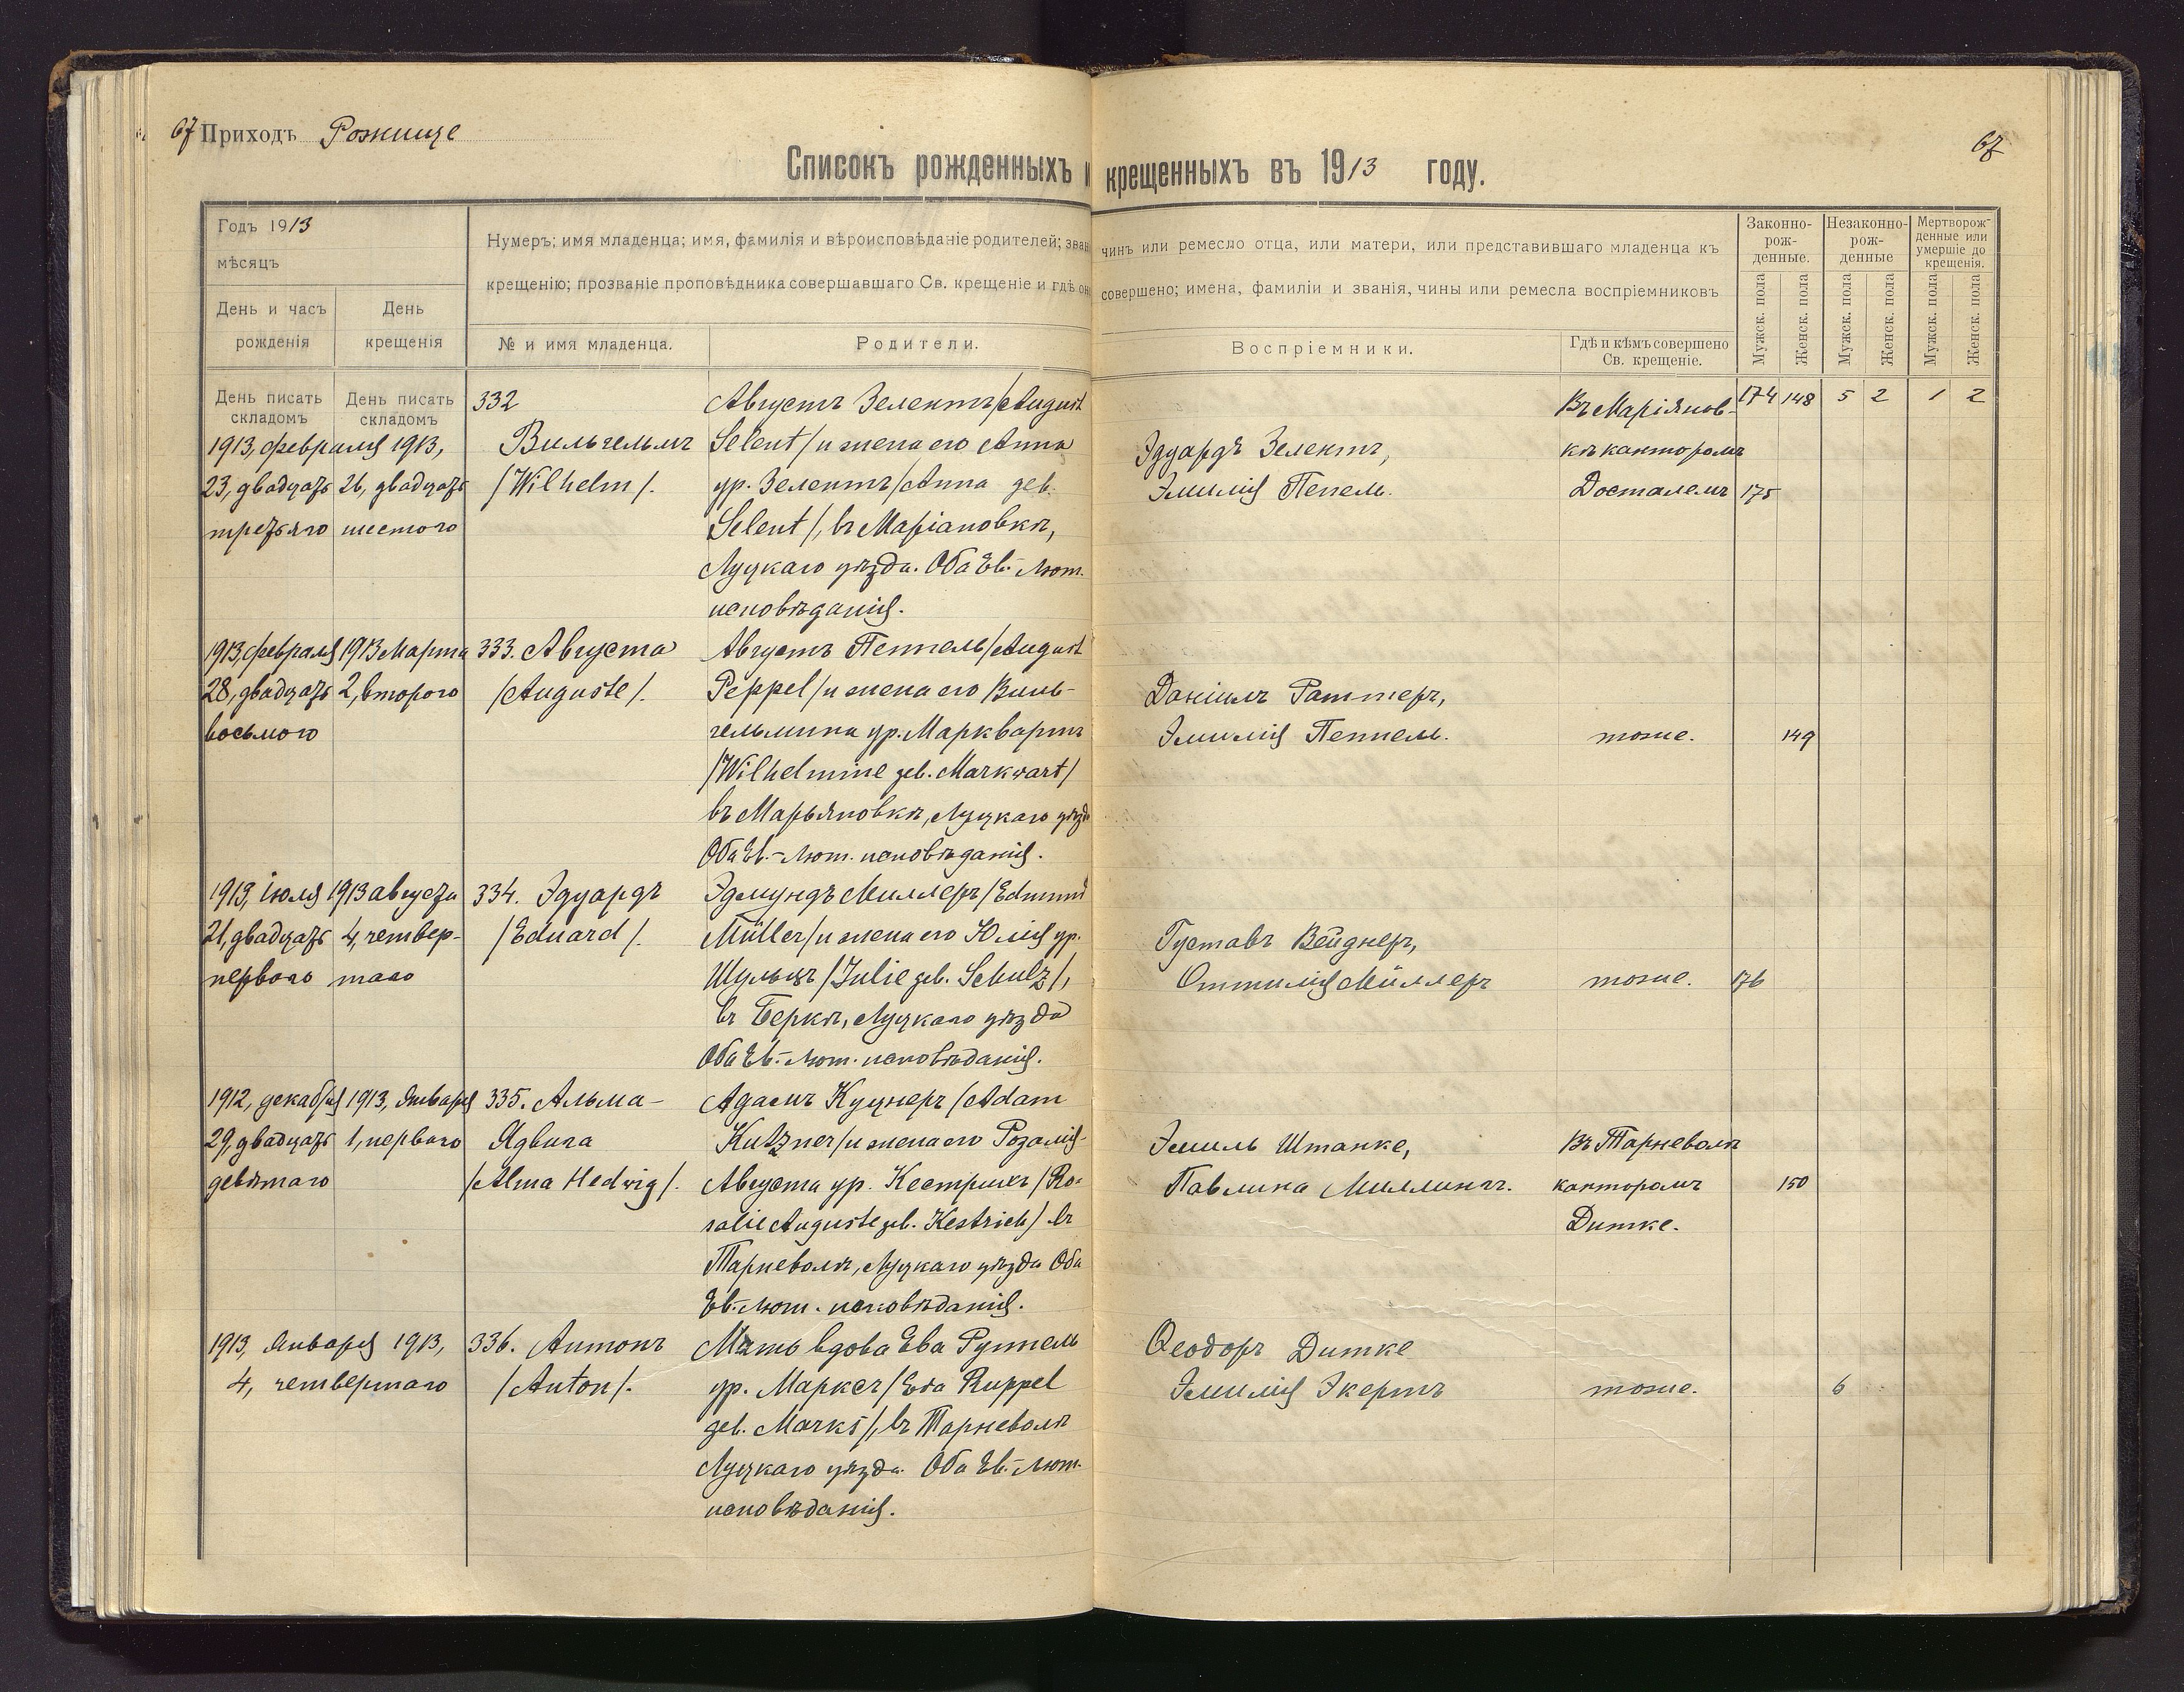 67 Приходъ Рожище
67
Списокъ рожденныхъ и крещенныхъ въ 1913 году.
Годъ 1913
мѣсяцъ
День и часъ рожденія
День крещенія
Нумеръ; имя младенца; имя, фамилія и вѣроисповѣданіе родителей; зван чинъ или ремесло отца, или матери, или представившаго младенца къ
крещенію; прозваніе проповѣдника совершавшаго Св. крещеніе и гдѣ он совершено; имена, фамиліи и званія, чины или ремесла воспріемниковъ
№ и имя младенца.
Родители.
Воспріемники.
Гдѣ и кѣмъ совершено
Св. крещеніе.
Законно-
рож-
денные.
Незаконно-
рож-
денные
Мертворож-
денные или
умершіе до
крещенія.
Мужск. пола
Женск. пола
Мужск. пола
Женск. пола
Мужск. пола
Женск. пола
День писать
складомъ
День писать
складомъ
1913, февраля
23, двадцать
третьяго
1913,
26, двадцать
шестого
332
Вильгельмъ
/Wilhelm/.
Августъ Зелентъ/August
Selent/ и жена его Анна
ур. Зелентъ/Anna geb.
Selent/, въ Маріановкѣ,
Луцкаго уѣзда. Оба Ев.-Лют.
исповѣданія.
Эдуардъ Зелентъ,
Эмилія Пепель.
Въ Маріянов-
кѣ канторомъ
Досталемъ
174 148 5 2 1 2
175
1913, февраля
28, двадцать
восьмого
1913 Марта
2, второго
333. Августа
/Auguste/.
Августъ Пеппель/August
Peppel/ и жена его Виль-
гельмина ур. Марквартъ
/Wilhelmine geb. Markwart/
въ Марьяновкѣ, Луцкаго уѣзда
Оба Ев.-Лют. исповѣданія.
Даніилъ Раттеръ,
Эмилія Пеппель.
тоже.
149
1913, іюля
21, двадцать
перваго
1913 августа
4, четвер-
таго
334. Эдуардъ
/Eduard/.
Эдмундъ Миллеръ/Edmund
Müller/ и жена его Юлія ур.
Шульцъ/Julie geb. Schulz/,
въ Беркѣ, Луцкаго уѣзда
Оба Ев.-Лют. исповѣданія.
Густавъ Вейднеръ,
Оттилія Мüллеръ
тоже.
176
1912, декабря
29, двадцать
девятаго
1913, Января
1, перваго
335. Альма-
Ядвига
/Alma Hedwig/.
Адамъ Куцнеръ/Adam
Kutzner/ и жена его Розалія-
Августа ур. Кестрихъ/Ro-
salie Auguste geb. Kestrich/ въ
Тарневолѣ, Луцкаго уѣзда Оба
Ев.-Лют. исповѣданія.
Эмиль Штанке,
Павлина Миллингъ.
Въ Тарневолѣ
канторомъ
Дитке.
150
1913, Января
4, четвертаго
1913,
336. Антонъ
/Anton/.
Мать вдова Ева Руппель
ур. Марксъ/Eva Ruppel
geb. Marks/, въ Тарневолѣ
Луцкаго уѣзда. Оба Ев.-Лют.
исповѣданія.
Ѳеодоръ Дитке
Эмилія Экертъ
тоже.
6